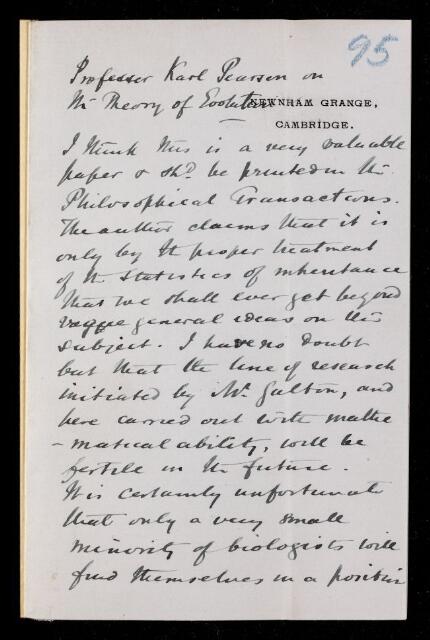 95
Professer Karl Pearson on
the Theory of Evolution
NEWNHAM GRANGE,
CAMBRIDGE.
I think this is a very valuable
paper & shd. be printed in the
Philosophical Transactions.
The author claims that it is
only by the proper treatment
of the statistics of inheritance
that we shall ever get beyond
vague general ideas on this
subject. I have no doubt
but that the line of research
initiated by Mr. Galton, and
here carried out with mathe
-matical ability, will be
fertile in the future.
It is certainly unfortunate
that only a very small
minority of biologists will
find themselves in a position